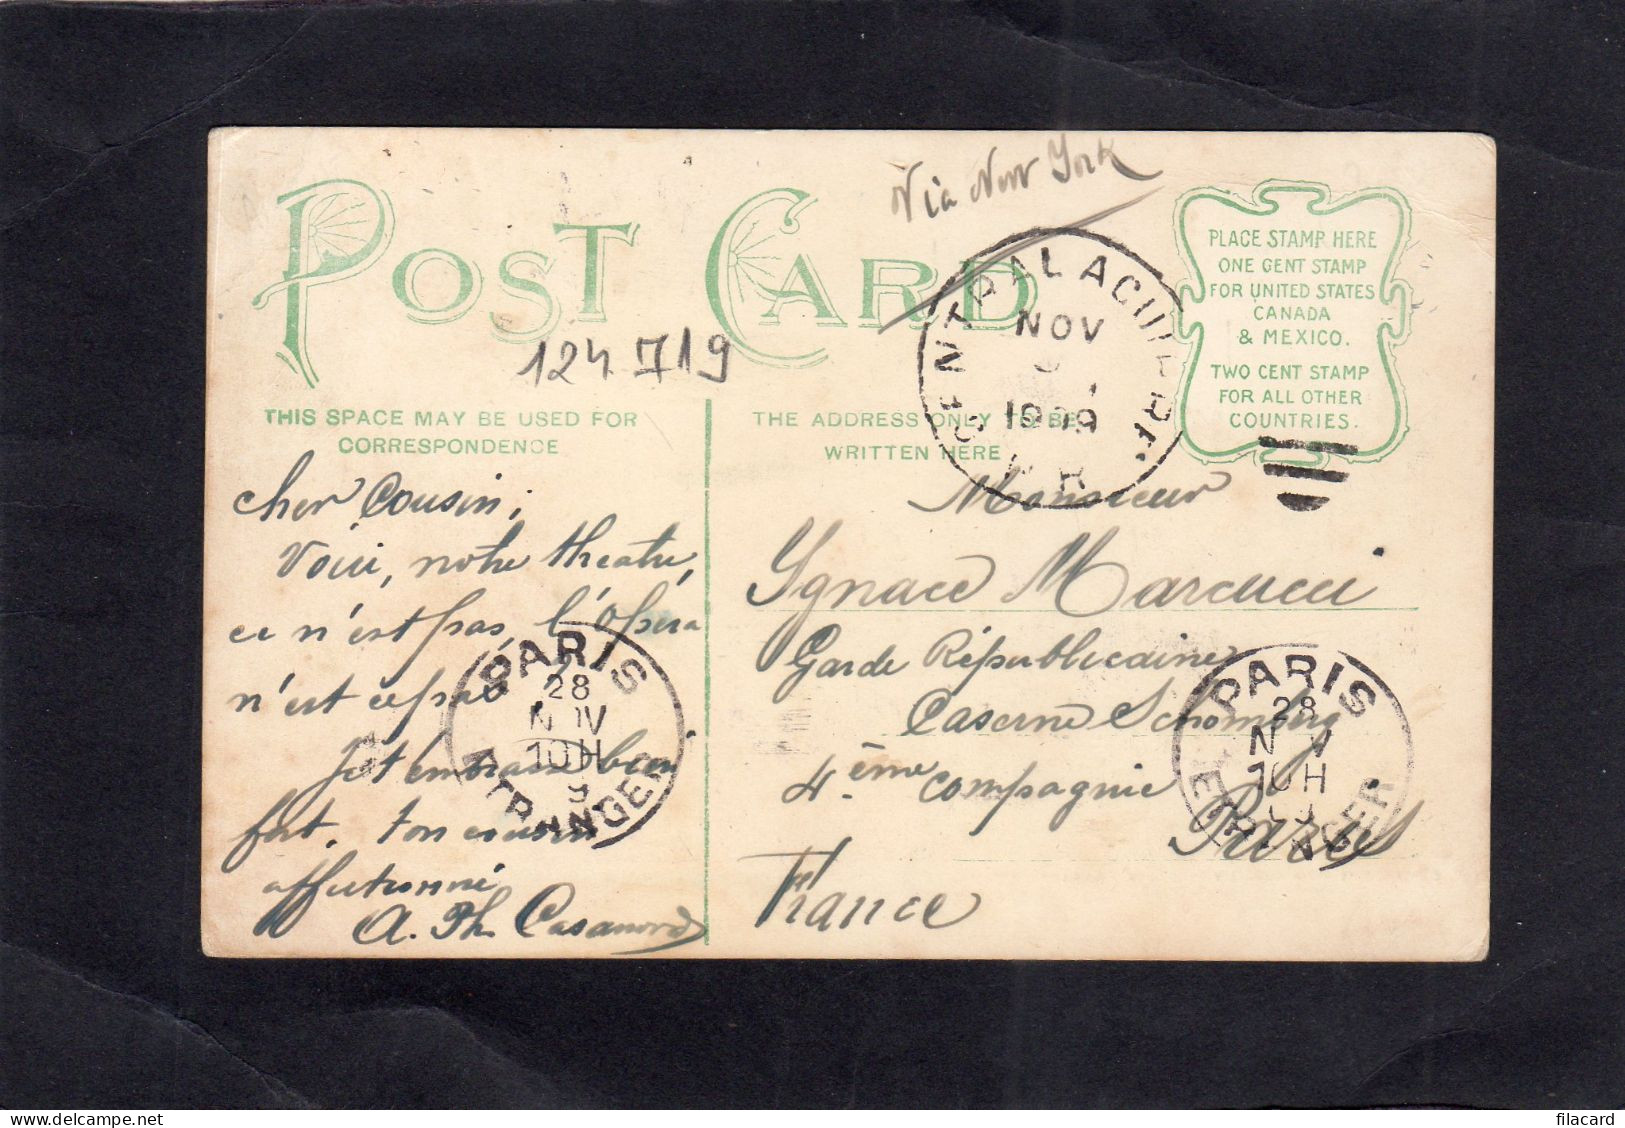 Via New York
POST CARD
124719
THIS SPACE MAY BE USED FOR
CORRESPONDENCE
THE ADDRESS ONLY TO BE
WRITTEN HERE
PLACE STAMP HERE
ONE CENT STAMP
FOR UNITED STATES
CANADA
& MEXICO.
TWO CENT STAMP
FOR ALL OTHER
COUNTRIES.
CENTRAL AGUIRRE
NOV
1909
P.R.
cher Cousin;
Voici, notre theatre,
ce n'est pas, l'opéra
n'est ce pas
Je t'embrasse bien
fort. ton cousin
affectionné
A. Ph. Casanova
Monsieur
Ygnace Marcucci
Garde Républicaine
Caserne Schomberg
4.ème Compagnie
Paris
France
PARIS
28
NOV
10H
ETRANGER
PARIS
28
NOV
10H
09
ETRANGER
filacard